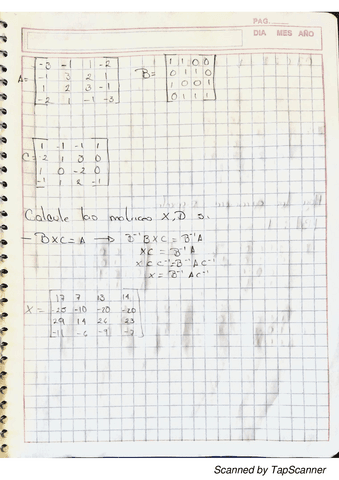 PAG.
DIA MES AÑO
A= -3 -1 1 -2
-1 3 2 1
1 2 3 -1
-2 1 -1 -3
B= 1 1 0 0
0 1 1 0
1 0 0 1
0 1 1 1
C= 1 -1 -1 1
2 1 3 0
1 0 -2 0
-1 1 2 -1
Calcule las matrices X, D si
- BXC=A → B⁻¹BXC=B⁻¹A
XC=B⁻¹A
XCC⁻¹=B⁻¹AC⁻¹
X=B⁻¹AC⁻¹
X= 17 7 13 14
-25 -10 -20 -20
29 14 26 23
-11 -6 -9 -7
Scanned by TapScanner